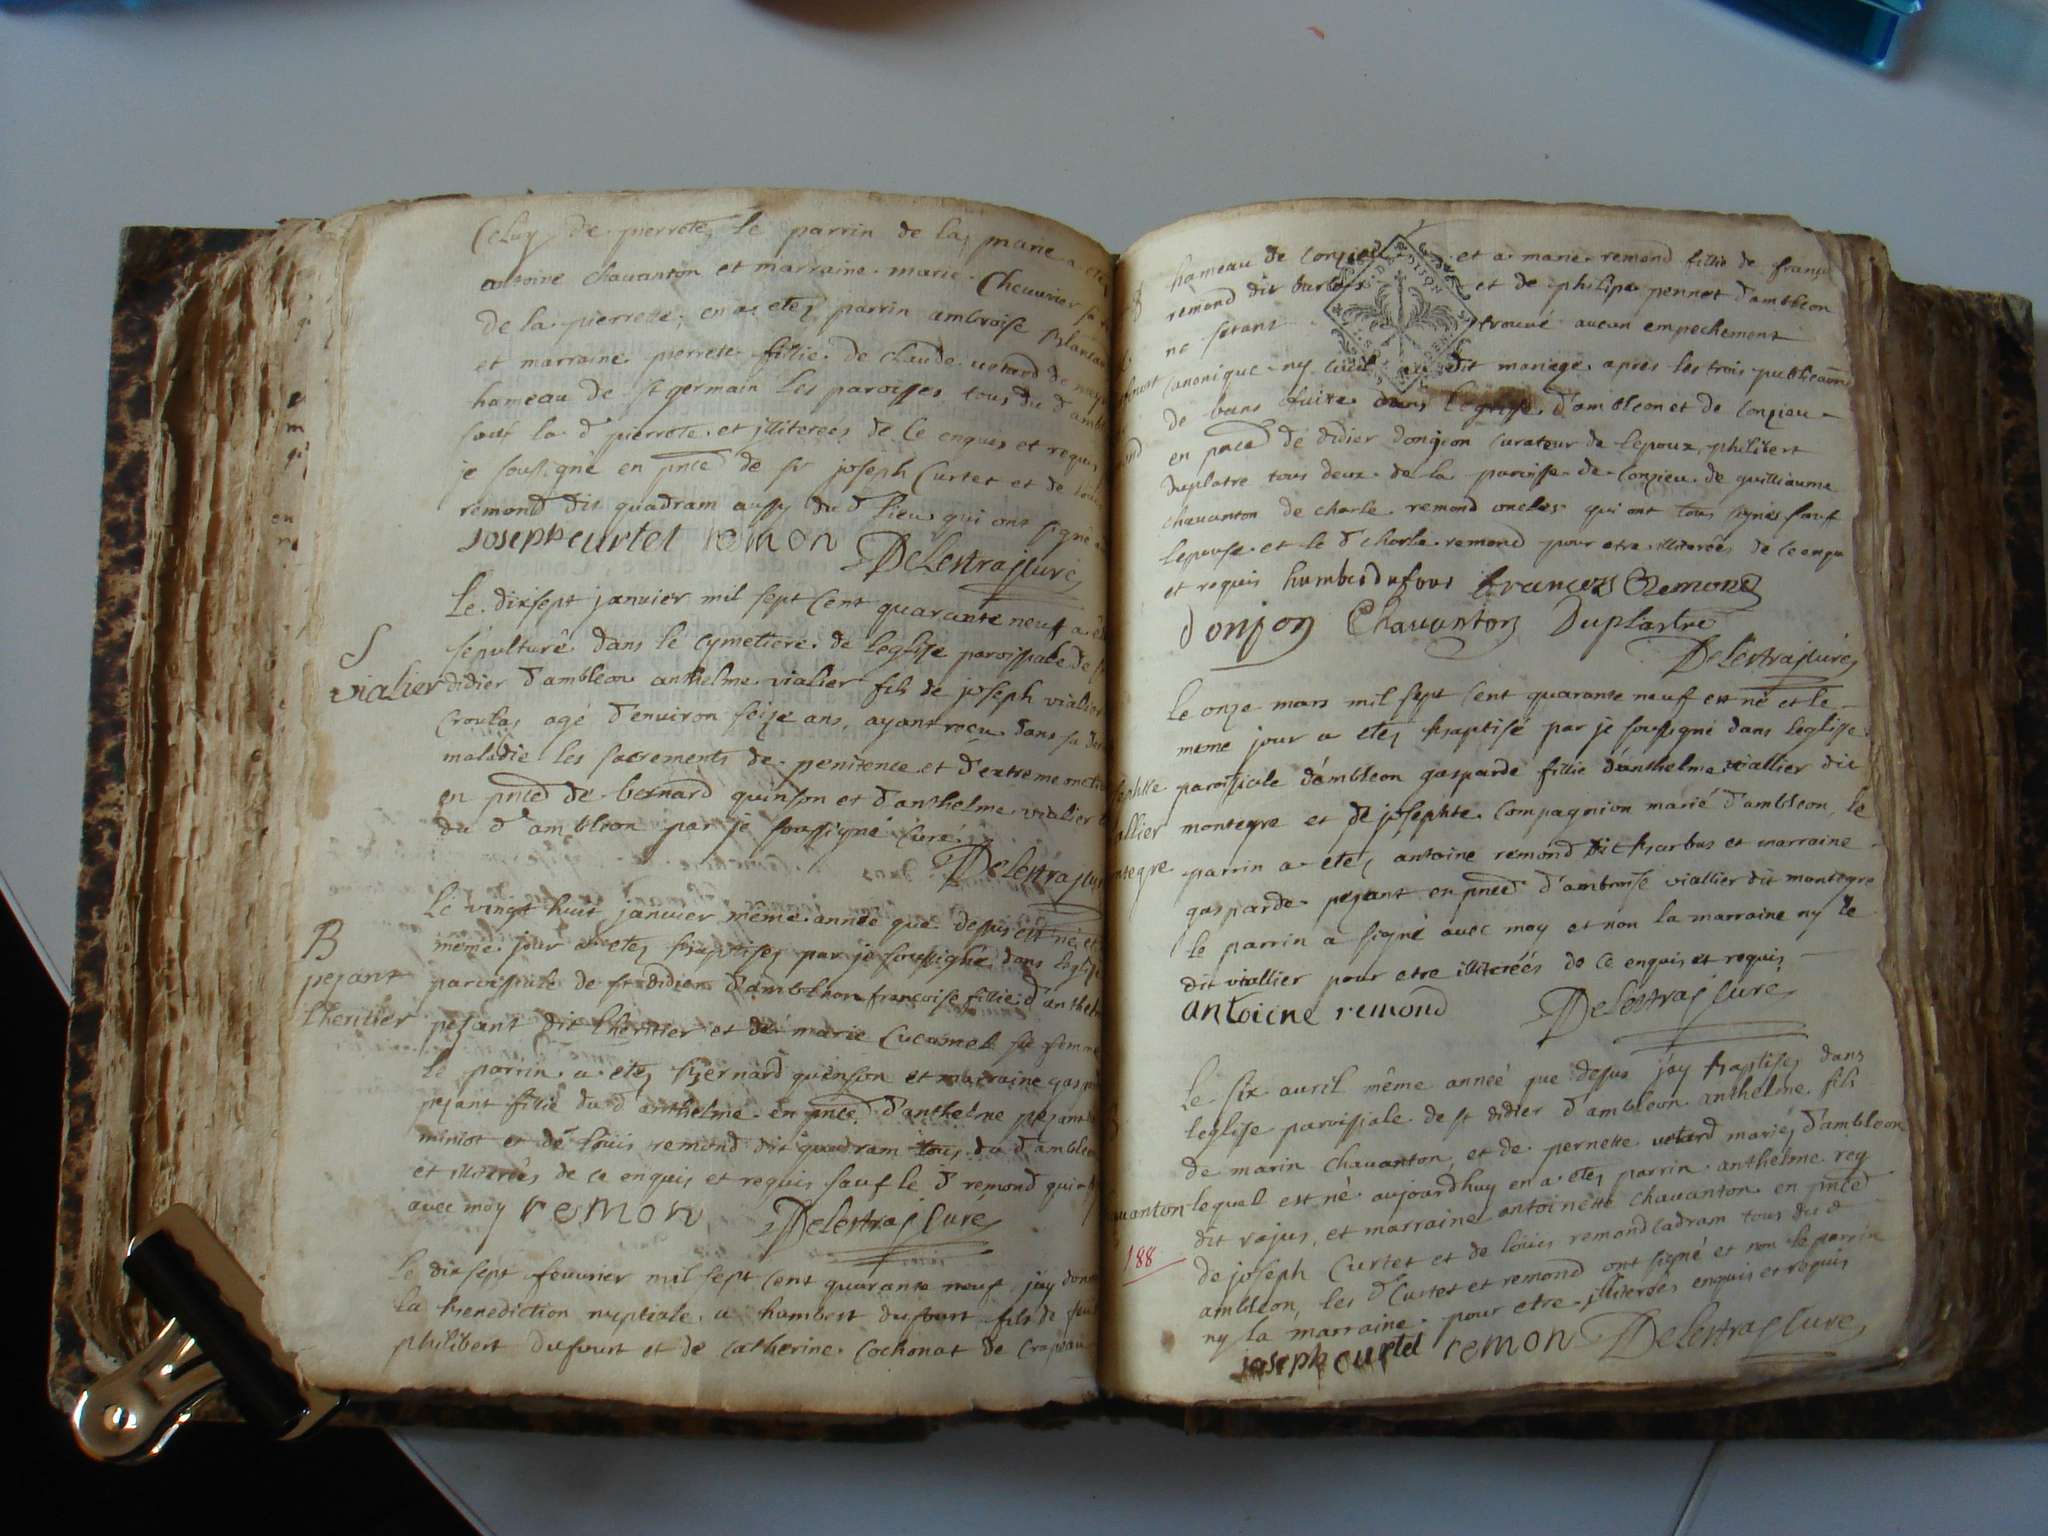 Celuy de pierrete, le parrin de la marie a etez
antoine chavanton et marraine marie Cheuvrier sa
de la pierrette, en a etez parrin ambroise
et marraine pierrete fillie de claude vetard de
hameau de st germain les paroisses tous du d
sauf la d pierrete et illiterees de ce enquis et requis
je soussigné en pnce de sr joseph Curtet et de
remond dit quadram aussy du d lieu qui ont signé
joseph curtet remon
Delestraz Curé
Le dixsept janvier mil sept cent quarante neuf a
S
sepulturé dans le cymetiere de leglise paroissiale de
vialier
didier d'ambleon anthelme vialier fils de joseph vialier
croutas agé d'environ seize ans, ayant recu dans sa
maladie les sacrements de penitence et d'extreme onction
en pnce de bernard quinson et d'anthelme vialier
du d ambleon par je soussigné curé
Delestraz
Le vingt huit janvier même année que dessus est né et
B
même jour a etez baptisez par je soussigné dans leglise
pezant
paroissiale de st didier d'ambleon françoise fillie d'anthelme
lheritier
pezant dit lheritier et de marie Cucumel sa femme
le parrin a etez bernard quinson et marraine
pezant fillie du d anthelme en pnce d'anthelme pezant
miniot et de louis remond dit quadram tous du d ambleon
et illiterées de ce enquis et requis sauf le d remond qui a
avec moy remon
Delestraz Cure
Le dixsept feuvrier mil sept cent quarante neuf jay donné
la benediction nuptiale a humbert dufour fils de
philibert dufour et de catherine cochonat de
hameau de Conzieu et a marie remond fillie de
remond dit burlet et de philipe pennet d'ambleon
ne setant trouvé aucun empechement
canonique ny civil au dit mariage apres les trois publications
de bans faites dans leglise d'ambleon et de Conzieu
en pnce de didier donjeon curateur de lepoux, philibert
duplatre tous deux de la paroisse de Conzieu de guilliaume
chavanton de charle remond oncles qui ont tous signés sauf
lepouse et le d charle remond pour etre illiterées de ce enquis
et requis humber dufour francois Remond
donjon Chavanton Duplastre
Delestraz Curé
Le onze mars mil sept cent quarante neuf est né et le
meme jour a etez baptisé par je soussigné dans leglise
paroissiale d'ambleon gasparde fillie d'anthelme viallier dit
allier
montegre et de josephte compagnion marié d'ambleon, le
ntegre
parrin a etez antoine remond dit barbus et marraine
gasparde pezant en pnce d'ambroise viallier dit montegre
le parrin a signé avec moy et non la marraine ny le
dit viallier pour etre illiterées de ce enquis et requis
antoine remond Delestraz Cure
Le six avril même année que dessus jay baptisez dans
leglise paroissiale de st didier d'ambleon anthelme fils
de marin chavanton, et de pernette vetard mariez d'ambleon
vanton
lequel est né aujourdhuy en a etez parrin anthelme rey
dit vajus, et marraine antoinette chavanton en pnce
188
de joseph Curtet et de louis remond cadram tous du d
ambleon, les d Curtet et remond ont signé et non le parrin
ny la marraine pour etre illiterées enquis et requis
joseph curtet remon Delestraz Cure